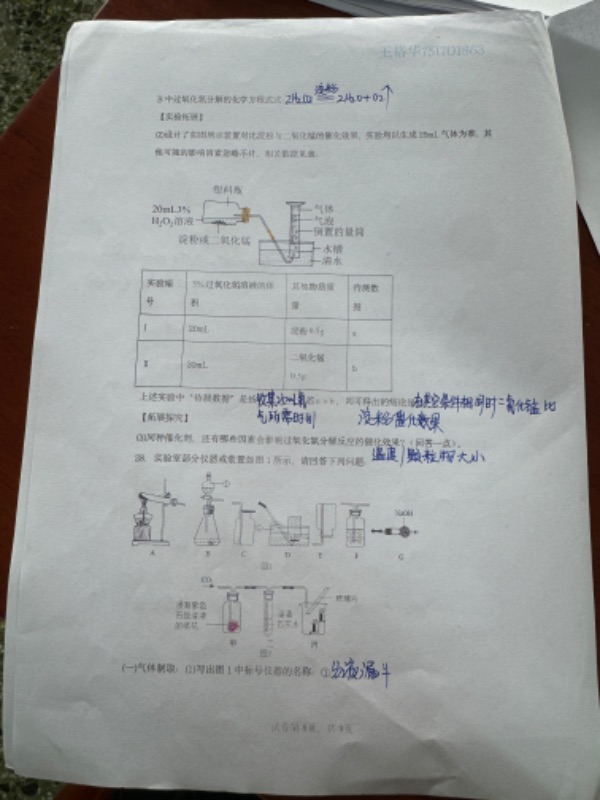 王裕华7517D1863
2H₂O₂ 淀粉 2H₂O+O₂↑
【实验拓展】
(2)设计了如图所示装置对比淀粉与二氧化锰的催化效果，实验均以生成25mL气体为准，其
他可能的影响因素忽略不计，相关数据见表：
塑料瓶
20mL3%
H₂O₂溶液
淀粉或二氧化锰
气体
气泡
倒置的量筒
水槽
清水
实验编号 3%过氧化氢溶液的体积 其他物质质量 待测数据
Ⅰ 20mL 淀粉0.5g a
Ⅱ 20mL 二氧化锰0.5g b
上述实验中“待测数据”是指 收集25mL氧气所需时间 若a>b，即可得出的结论是 在其它条件相同时二氧化锰比淀粉催化效果
【拓展探究】
(3)同种催化剂，还有哪些因素会影响过氧化氢分解反应的催化效果？(回答一点)。 温度/颗粒大小
38. 实验室部分仪器或装置如图1所示，请回答下列问题
①
②
NaOH
A B C D E F G
图1
CO₂
玻璃片
甲 乙 丙
图2
(一)气体制取：(1)写出图1中标号仪器的名称：① 分液漏斗
试卷第8页，共9页